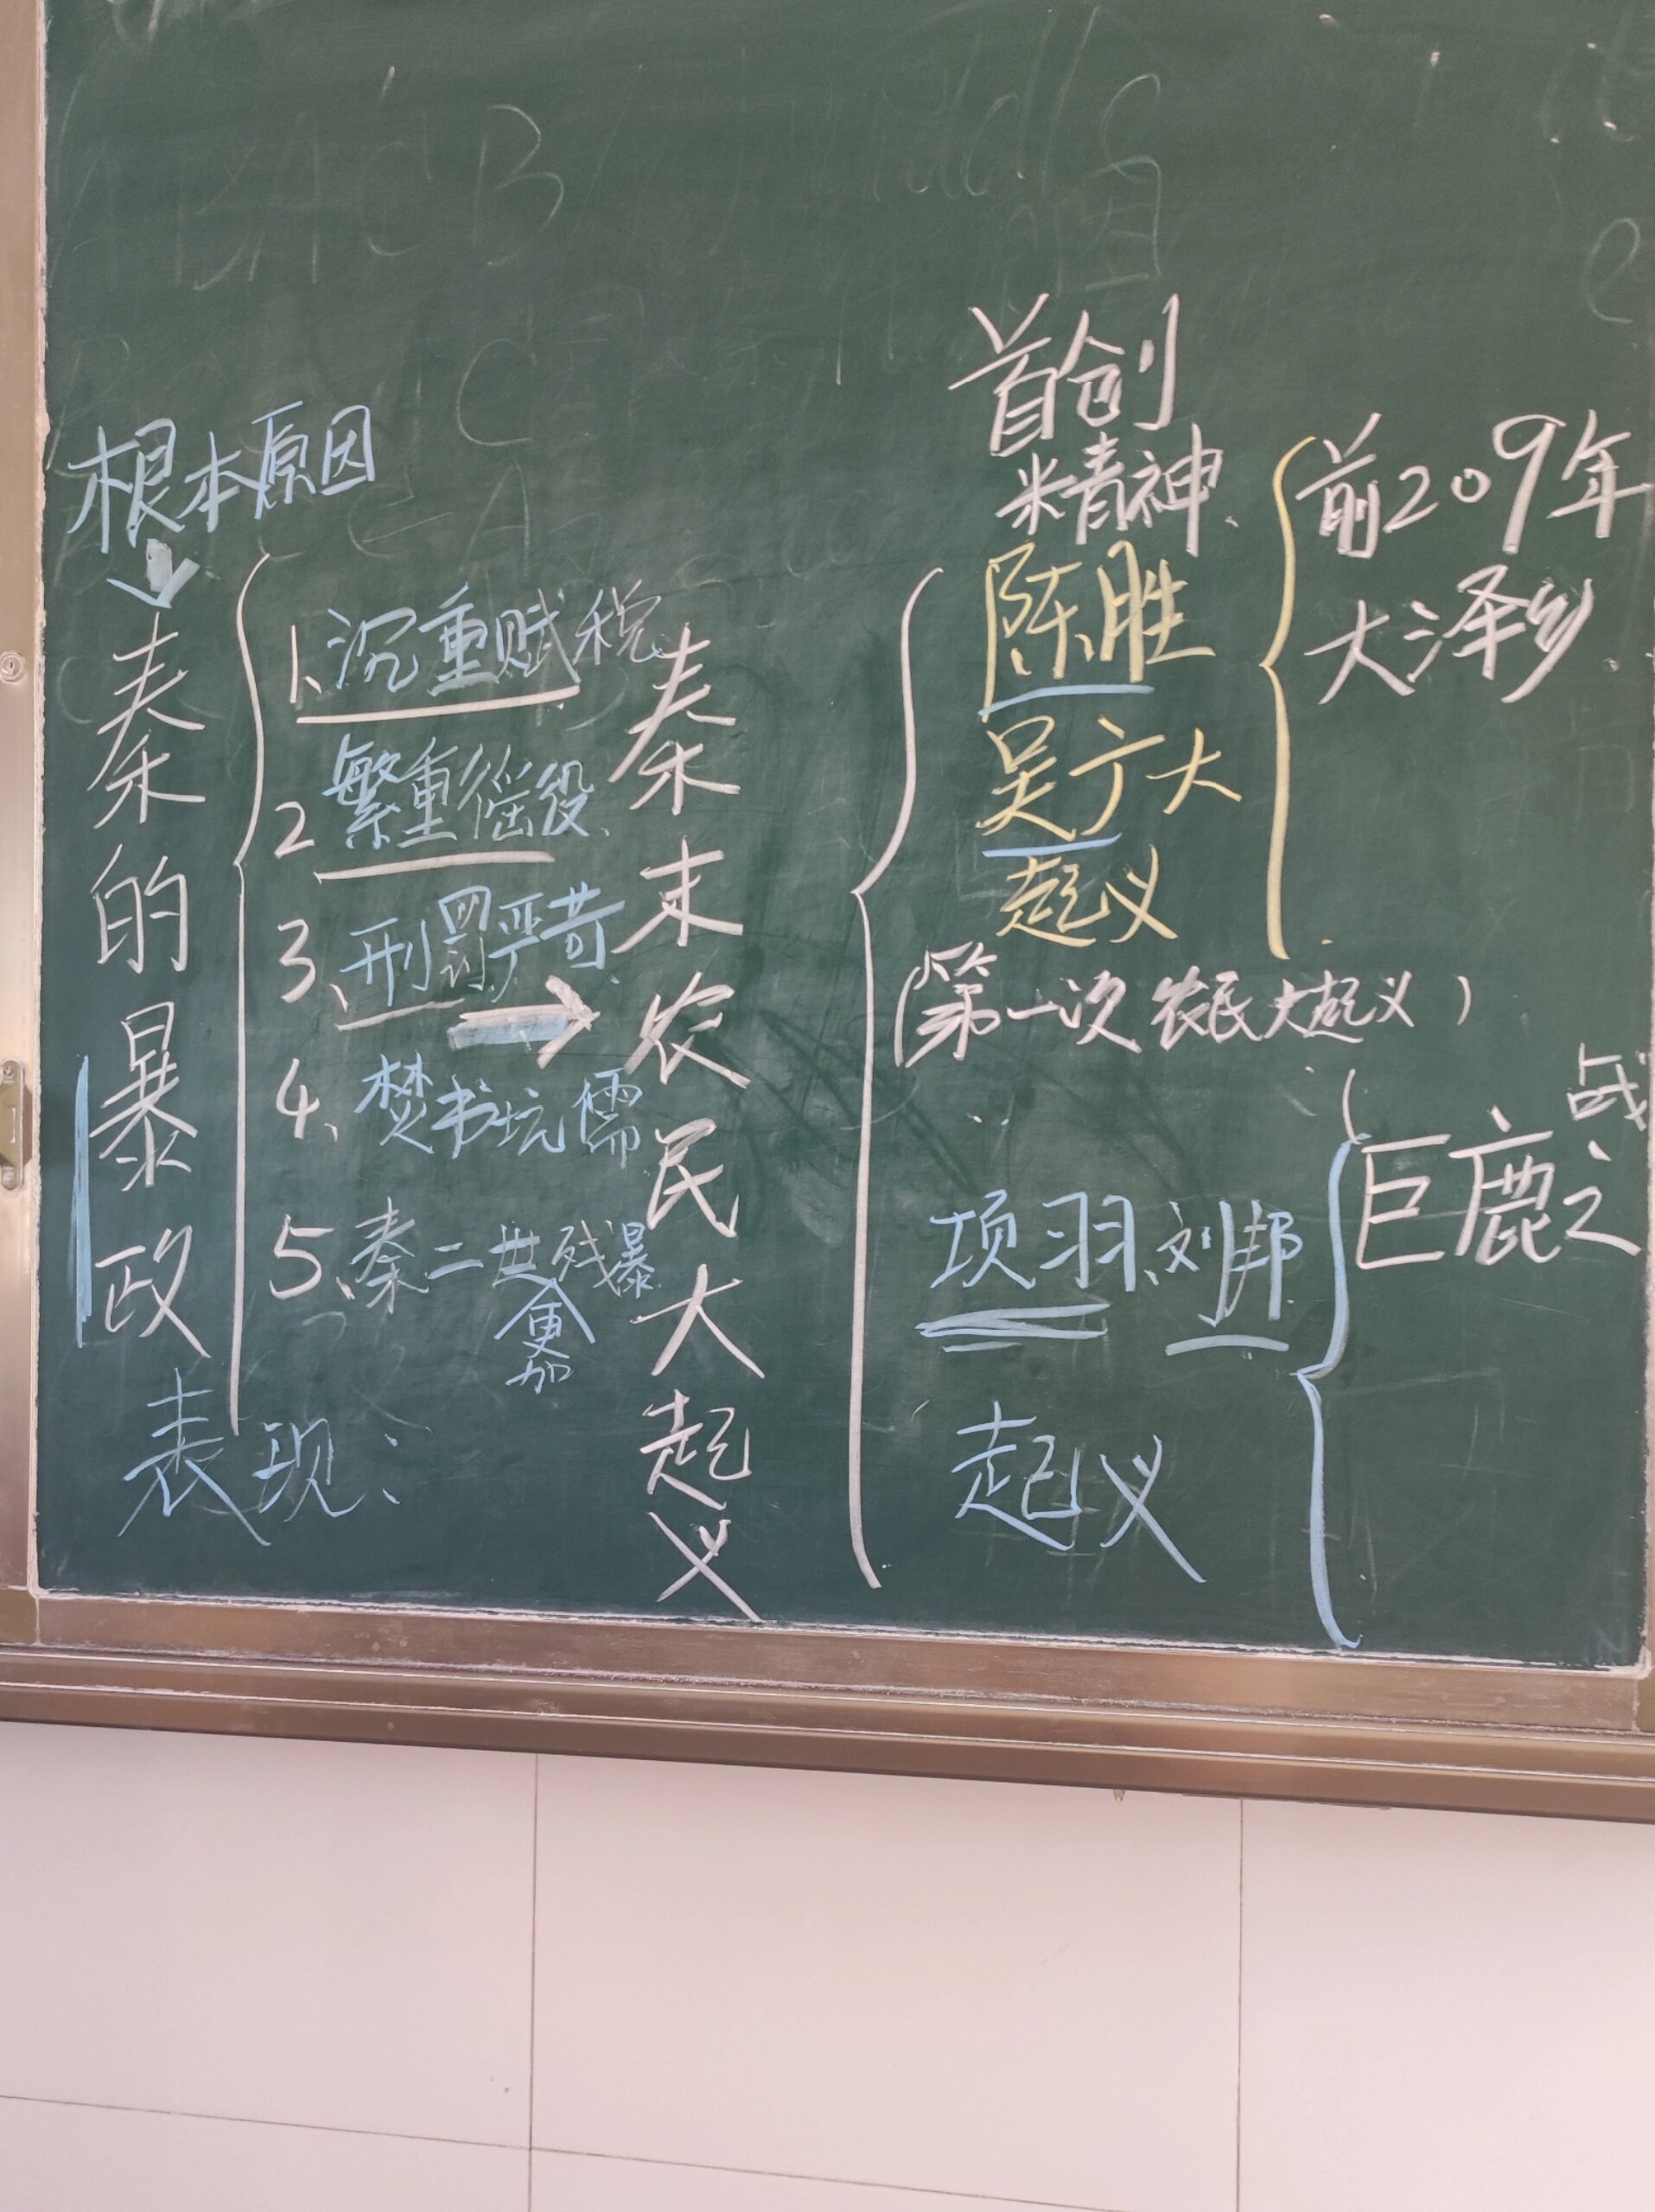 根本原因
秦的暴政
表现:
1、沉重赋税
2繁重徭役、
3、刑罚严苛
4、焚书坑儒
5、秦二世残暴
更加
秦末农民大起义
首创
精神
陈胜
吴广大
起义
(第一次农民大起义)
前209年
大泽乡
项羽、刘邦
起义
巨鹿之
战